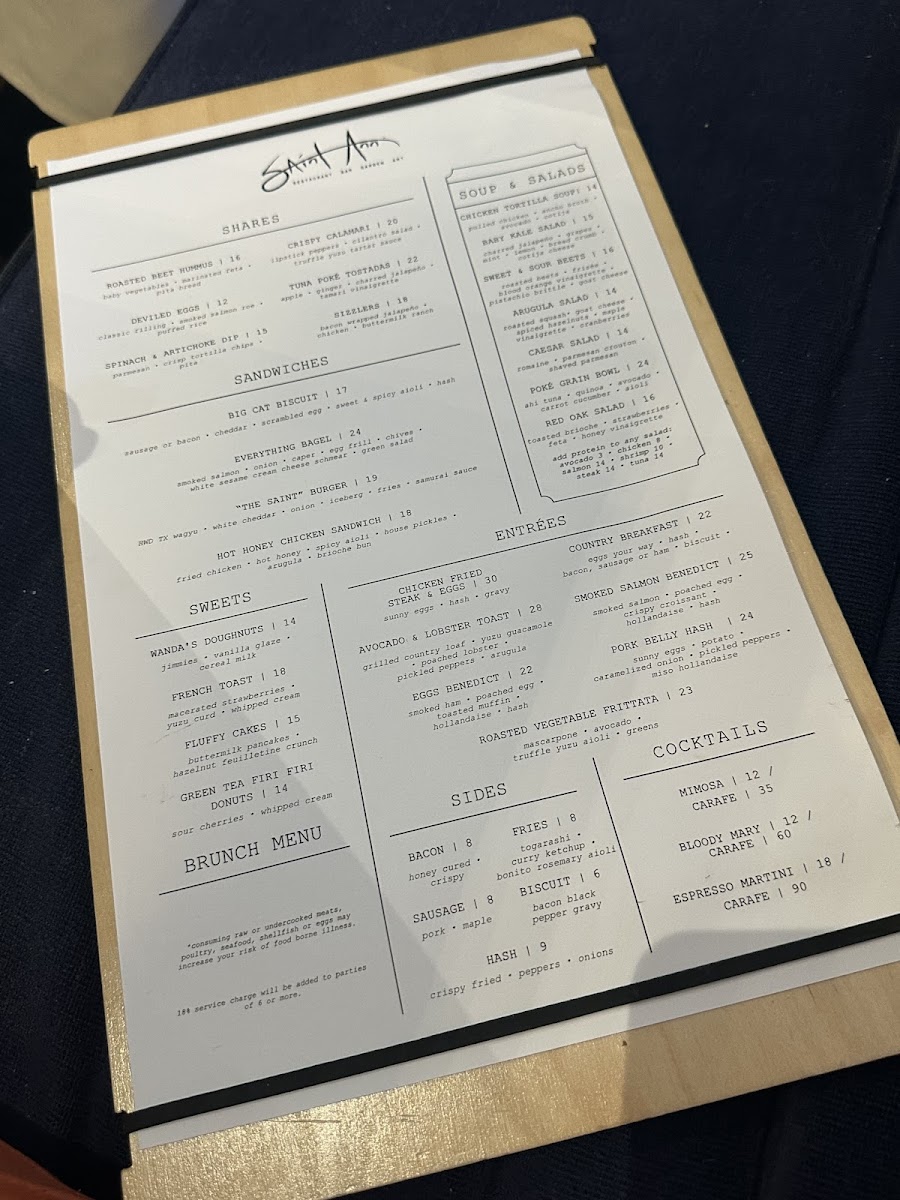 Saint Ann
RESTAURANT BAR GARDEN ART
SHARES
ROASTED BEET HUMMUS | 16
baby vegetables • marinated feta •
pita bread
DEVILED EGGS | 12
classic filling • smoked salmon roe •
puffed rice
SPINACH & ARTICHOKE DIP | 15
parmesan • crisp tortilla chips •
pita
CRISPY CALAMARI | 20
lipstick peppers • cilantro salsa •
truffle yuzu tartar sauce
TUNA POKÉ TOSTADAS | 22
apple • ginger • charred jalapeño •
tamari vinaigrette
SIZZLERS | 18
bacon wrapped jalapeño •
chicken • buttermilk ranch
SOUP & SALADS
CHICKEN TORTILLA SOUP| 14
pulled chicken • ancho broth •
avocado • cotija
BABY KALE SALAD | 15
charred jalapeño • grapes •
mint • lemon • bread crumb •
cotija cheese
SWEET & SOUR BEETS | 16
roasted beets • frisée •
blood orange vinaigrette •
pistachio brittle • goat cheese
ARUGULA SALAD | 14
roasted squash• goat cheese •
spiced hazelnuts • maple
vinaigrette • cranberries
CAESAR SALAD | 14
romaine • parmesan crouton •
shaved parmesan
POKÉ GRAIN BOWL | 24
ahi tuna • quinoa • avocado •
carrot cucumber • aioli
RED OAK SALAD | 16
toasted brioche • strawberries •
feta • honey vinaigrette
add protein to any salad:
avocado 3 • chicken 8 •
salmon 14 • shrimp 10 •
steak 14 • tuna 14
SANDWICHES
BIG CAT BISCUIT | 17
sausage or bacon • cheddar • scrambled egg • sweet & spicy aioli • hash
EVERYTHING BAGEL | 24
smoked salmon • onion • caper • egg frill • chives •
white sesame cream cheese schmear • green salad
“THE SAINT” BURGER | 19
HWD TX wagyu • white cheddar • onion • iceberg • fries • samurai sauce
HOT HONEY CHICKEN SANDWICH | 18
fried chicken • hot honey • spicy aioli • house pickles •
arugula • brioche bun
ENTRÉES
CHICKEN FRIED
STEAK & EGGS | 30
sunny eggs • hash • gravy
AVOCADO & LOBSTER TOAST | 28
grilled country loaf • yuzu guacamole
• poached lobster •
pickled peppers • arugula
EGGS BENEDICT | 22
smoked ham • poached egg •
toasted muffin •
hollandaise • hash
COUNTRY BREAKFAST | 22
eggs your way • hash •
bacon, sausage or ham • biscuit •
SMOKED SALMON BENEDICT | 25
smoked salmon • poached egg •
crispy croissant •
hollandaise • hash
PORK BELLY HASH | 24
sunny eggs • potato •
caramelized onion • pickled peppers •
miso hollandaise
ROASTED VEGETABLE FRITTATA | 23
mascarpone • avocado •
truffle yuzu aioli • greens
SWEETS
WANDA'S DOUGHNUTS | 14
jimmies • vanilla glaze •
cereal milk
FRENCH TOAST | 18
macerated strawberries •
yuzu curd • whipped cream
FLUFFY CAKES | 15
buttermilk pancakes •
hazelnut feuilletine crunch
GREEN TEA FIRI FIRI
DONUTS | 14
sour cherries • whipped cream
BRUNCH MENU
*consuming raw or undercooked meats,
poultry, seafood, shellfish or eggs may
increase your risk of food borne illness.
18% service charge will be added to parties
of 6 or more.
SIDES
BACON | 8
honey cured •
crispy
SAUSAGE | 8
pork • maple
FRIES | 8
togarashi •
curry ketchup •
bonito rosemary aioli
BISCUIT | 6
bacon black
pepper gravy
HASH | 9
crispy fried • peppers • onions
COCKTAILS
MIMOSA | 12 /
CARAFE | 35
BLOODY MARY | 12 /
CARAFE | 60
ESPRESSO MARTINI | 18 /
CARAFE | 90